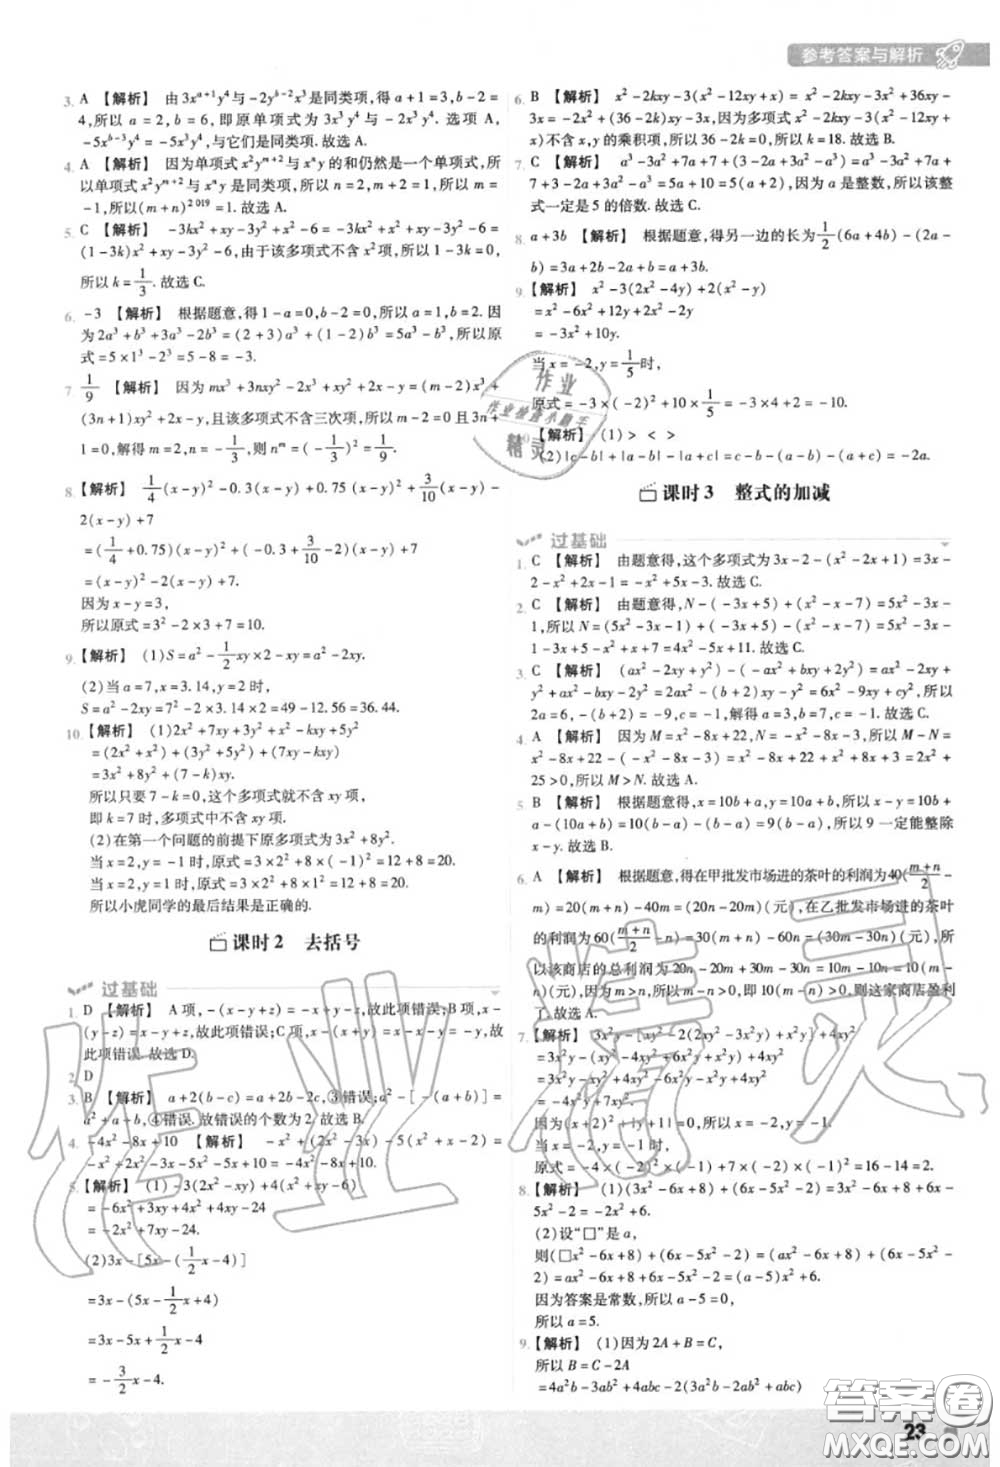 参考答案与解析
3. A 【解析】 由3xᵃ⁺¹y⁴与-2yᵇ⁻²x³是同类项,得a+1=3,b-2=
4,所以a=2,b=6,即原单项式为3x³y⁴与-2x³y⁴. 选项A,
-5xᵇ⁻³y⁴=-5x³y⁴,与它们是同类项.故选A.
4. A 【解析】 因为单项式x²yᵐ⁺²与xⁿy的和仍然是一个单项式,所
以单项式x²yᵐ⁺²与xⁿy是同类项,所以n=2,m+2=1,所以m=
-1,所以(m+n)²⁰¹⁹=1.故选A.
5. C 【解析】 -3kx²+xy-3y²+x²-6=
(1-3k)x²+xy-3y²-6,由于该多项式不含x²项,所以1-3k=0,
所以k=1/3.故选C.
6. -3 【解析】 根据题意,得1-a=0,b-2=0,所以a=1,b=2.因
为2a³+b³+3a³-2b³=(2+3)a³+(1-2)b³=5a³-b³,所以原
式=5×1³-2³=5-8=-3.
7 1/9 【解析】 因为mx³+3nxy²-2x³+xy²+2x-y=(m-2)x³+
(3n+1)xy²+2x-y,且该多项式不含三次项,所以m-2=0且3n+
1=0,解得m=2,n=-1/3,则nᵐ=(-1/3)²=1/9.
8. 【解析】 1/4(x-y)²-0.3(x-y)+0.75(x-y)²+3/10(x-y)-
2(x-y)+7
=(1/4+0.75)(x-y)²+(-0.3+3/10-2)(x-y)+7
=(x-y)²-2(x-y)+7.
因为x-y=3,
所以原式=3²-2×3+7=10.
9. 【解析】 (1)S=a²-1/2xy×2-xy=a²-2xy.
(2)当a=7,x=3.14,y=2时,
S=a²-2xy=7²-2×3.14×2=49-12.56=36.44.
10. 【解析】 (1)2x²+7xy+3y²+x²-kxy+5y²
=(2x²+x²)+(3y²+5y²)+(7xy-kxy)
=3x²+8y²+(7-k)xy.
所以只要7-k=0,这个多项式就不含xy项,
即k=7时,多项式中不含xy项.
(2)在第一个问题的前提下原多项式为3x²+8y².
当x=2,y=-1时,原式=3×2²+8×(-1)²=12+8=20.
当x=2,y=1时,原式=3×2²+8×1²=12+8=20.
所以小虎同学的最后结果是正确的.
课时2 去括号
过基础
1. D 【解析】 A项,-(-x+y+z)=-x+y-z,故此项错误;B项,x-
(-y+z)=x+y-z,故此项错误;C项,x-(x+y)=x-x-y=-y,故
此项错误.故选D.
2. D
3. B 【解析】 a+2(b-c)=a+2b-2c,③错误;a²-[-(-a+b)]=
a²+a+b,④错误.故错误的个数为2.故选B.
4. -4x²-8x+10 【解析】 -x²+(2x²-3x)-5(x²+x-2)=
-x²+2x²-3x-5x²-5x+10=-4x²-8x+10.
5. 【解析】 (1)-3(2x²-xy)+4(x²+xy-6)
=-6x²+3xy+4x²+4xy-24
=-2x²+7xy-24.
(2)3x-[5x-(1/2x-4)]
=3x-(5x-1/2x+4)
=3x-5x+1/2x-4
=-3/2x-4.
6. B 【解析】 x²-2kxy-3(x²-12xy+x)=x²-2kxy-3x²+36xy-
3x=-2x²+(36-2k)xy-3x,因为多项式x²-2kxy-3(x²-12xy+
x)不含x,y的乘积项,所以36-2k=0,所以k=18.故选B.
7. C 【解析】 a³-3a²+7a+7+(3-2a+3a²-a³)=a³-3a²+7a+
7+3-2a+3a²-a³=5a+10=5(a+2),因为a是整数,所以该整
式一定是5的倍数.故选C.
8. a+3b 【解析】 根据题意,得另一边的长为1/2(6a+4b)-(2a-
b)=3a+2b-2a+b=a+3b.
9. 【解析】 x²-3(2x²-4y)+2(x²-y)
=x²-6x²+12y+2x²-2y
=-3x²+10y.
当x=-2,y=1/5时,
原式=-3×(-2)²+10×1/5=-3×4+2=-10.
【解析】 (1)> < >
(2)|c-b|+|a-b|-|a+c|=c-b-(a-b)-(a+c)=-2a.
课时3 整式的加减
过基础
1. C 【解析】 由题意得,这个多项式为3x-2-(x²-2x+1)=3x-
2-x²+2x-1=-x²+5x-3.故选C.
2. C 【解析】 由题意得,N-(-3x+5)+(x²-x-7)=5x²-3x-
1,所以N=(5x²-3x-1)+(-3x+5)-(x²-x-7)=5x²-3x-
1-3x+5-x²+x+7=4x²-5x+11.故选C.
3. C 【解析】 (ax²-2xy+y²)-(-ax²+bxy+2y²)=ax²-2xy+
y²+ax²-bxy-2y²=2ax²-(b+2)xy-y²=6x²-9xy+cy²,所以
2a=6,-(b+2)=-9,c=-1,解得a=3,b=7,c=-1.故选C.
4. A 【解析】 因为M=x²-8x+22,N=-x²-8x-3,所以M-N=
x²-8x+22-(-x²-8x-3)=x²-8x+22+x²+8x+3=2x²+
25>0,所以M>N.故选A.
5. B 【解析】 根据题意得,x=10b+a,y=10a+b,所以x-y=10b+
a-(10a+b)=10(b-a)-(b-a)=9(b-a),所以9一定能整除
x-y.故选B.
6. A 【解析】 根据题意,得在甲批发市场进的茶叶的利润为40((m+n)/2-
m)=20(m+n)-40m=(20n-20m)(元),在乙批发市场进的茶叶
的利润为60((m+n)/2-n)=30(m+n)-60n=(30m-30n)(元),所
以该商店的总利润为20n-20m+30m-30n=10m-10n=10(m-
n)(元),因为m>n,所以m-n>0,即10(m-n)>0,则这家商店盈利
了.故选A.
7. 【解析】 3x²y-[xy²-2(2xy²-3x²y)+x²y]+4xy²
=3x²y-xy²+4xy²-6x²y-x²y+4xy²
=-4x²y+7xy².
因为(x+2)²+|y+1|=0,所以x=-2,y=-1.
当x=-2,y=-1时,
原式=-4×(-2)²×(-1)+7×(-2)×(-1)²=16-14=2.
8. 【解析】 (1)(3x²-6x+8)+(6x-5x²-2)=3x²-6x+8+6x-
5x²-2=-2x²+6.
(2)设“□”是a,
则(□x²-6x+8)+(6x-5x²-2)=(ax²-6x+8)+(6x-5x²-2)=
ax²-6x+8+6x-5x²-2=(a-5)x²+6.
因为答案是常数,所以a-5=0,
所以a=5.
9. 【解析】 (1)因为2A+B=C,
所以B=C-2A
=4a²b-3ab²+4abc-2(3a²b-2ab²+abc)
23
作业
作业检查小助手
精灵
作业精灵
答案圈
MXQE.COM